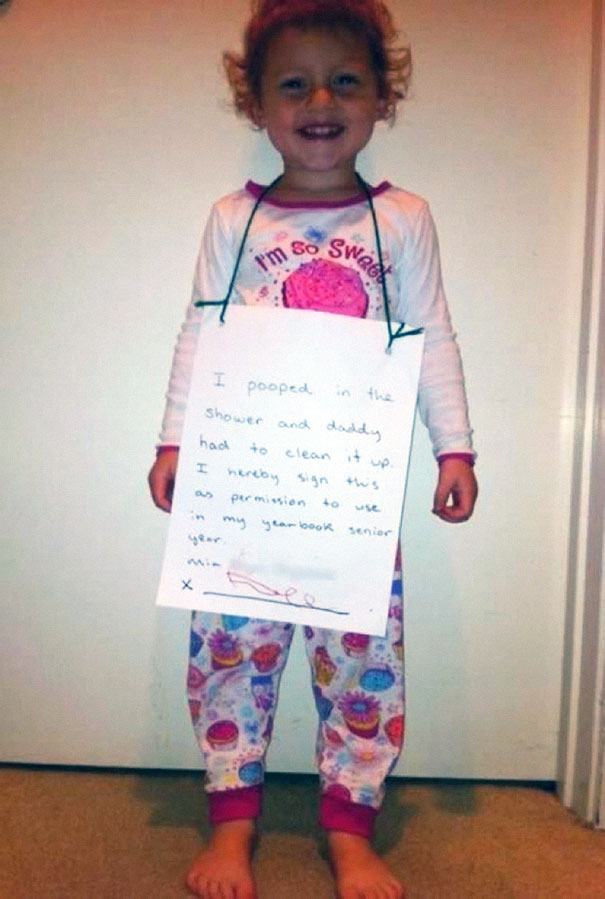 I'm so Sweet
I pooped in the
shower and daddy
had to clean it up.
I hereby sign this
as permission to use
in my yearbook senior
year.
Mia
X